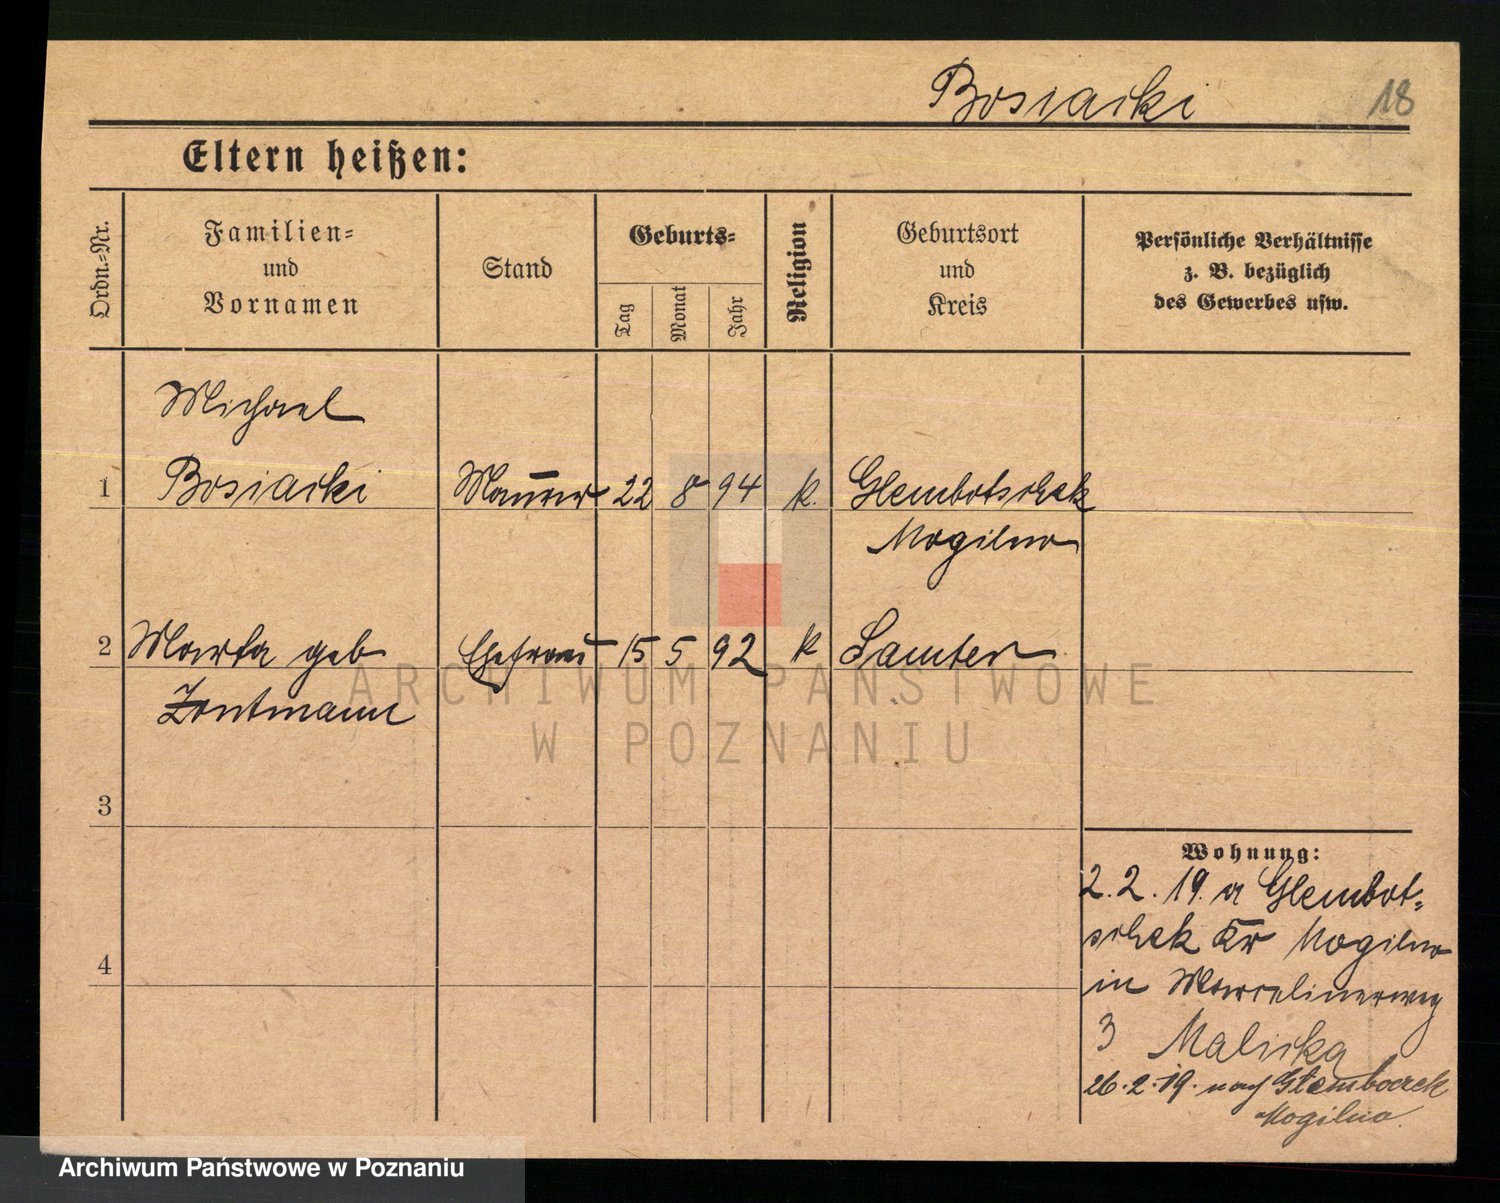 Bosiacki 18
Eltern heißen:
Ordn.-Nr.
Familien-
und
Vornamen
Stand
Geburts-
Tag
Monat
Jahr
Religion
Geburtsort
und
Kreis
Persönliche Verhältnisse
z. B. bezüglich
des Gewerbes usw.
Michael
1 Bosiacki Maurer 22 8 94 k. Glembotschek
Mogilno
2 Marta geb Ehefrau 15 5 92 k Samter
Zontmann
3
4
Wohnung:
2.2.19. a Glembot-
schek Kr Mogilno
in Marcelinerweg
3 Malicka
26.2.19. nach Glemboczek
Mogilno.
ARCHIWUM PAŃSTWOWE
W POZNANIU
Archiwum Państwowe w Poznaniu